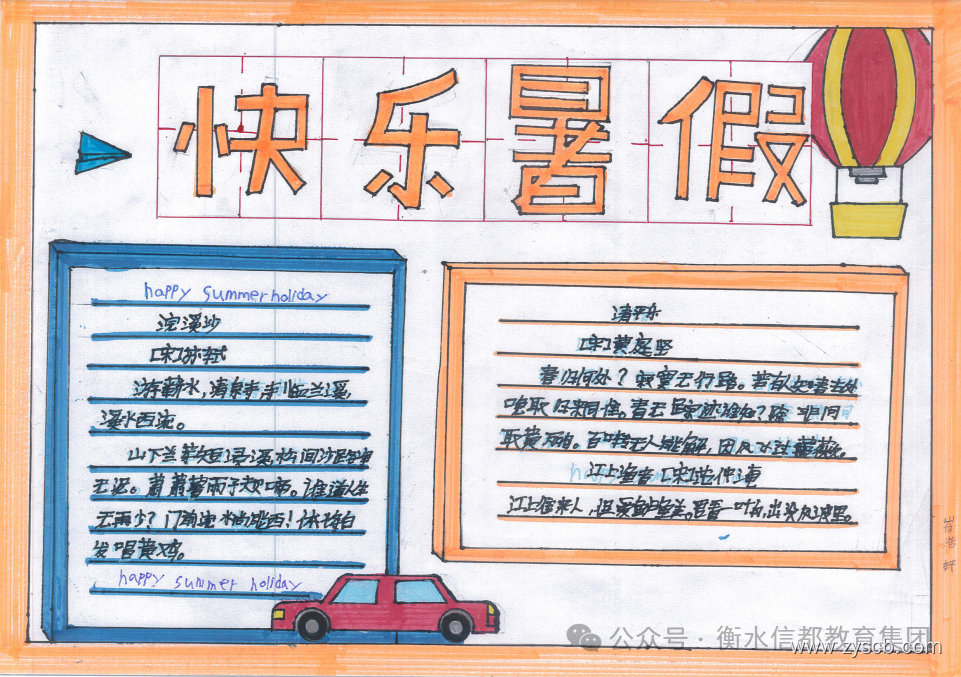 快乐暑假
happy summer holiday
浣溪沙
[宋]苏轼
游蕲水,清泉寺寺临兰溪,
溪水西流。
山下兰芽短浸溪,松间沙路净
无泥。萧萧暮雨子规啼。谁道人生
无再少?门前流水尚能西!休将白
发唱黄鸡。
happy summer holiday
清平乐
[宋]黄庭坚
春归何处?寂寞无行路。若有人知春去处
唤取归来同住。春无踪迹谁知?除非问
取黄鹂。百啭无人能解,因风飞过蔷薇。
江上渔者 [宋]范仲淹
江上往来人,但爱鲈鱼美。君看一叶舟,出没风波里。
崔浩轩
公众号·衡水信都教育集团
www.zyscb.com